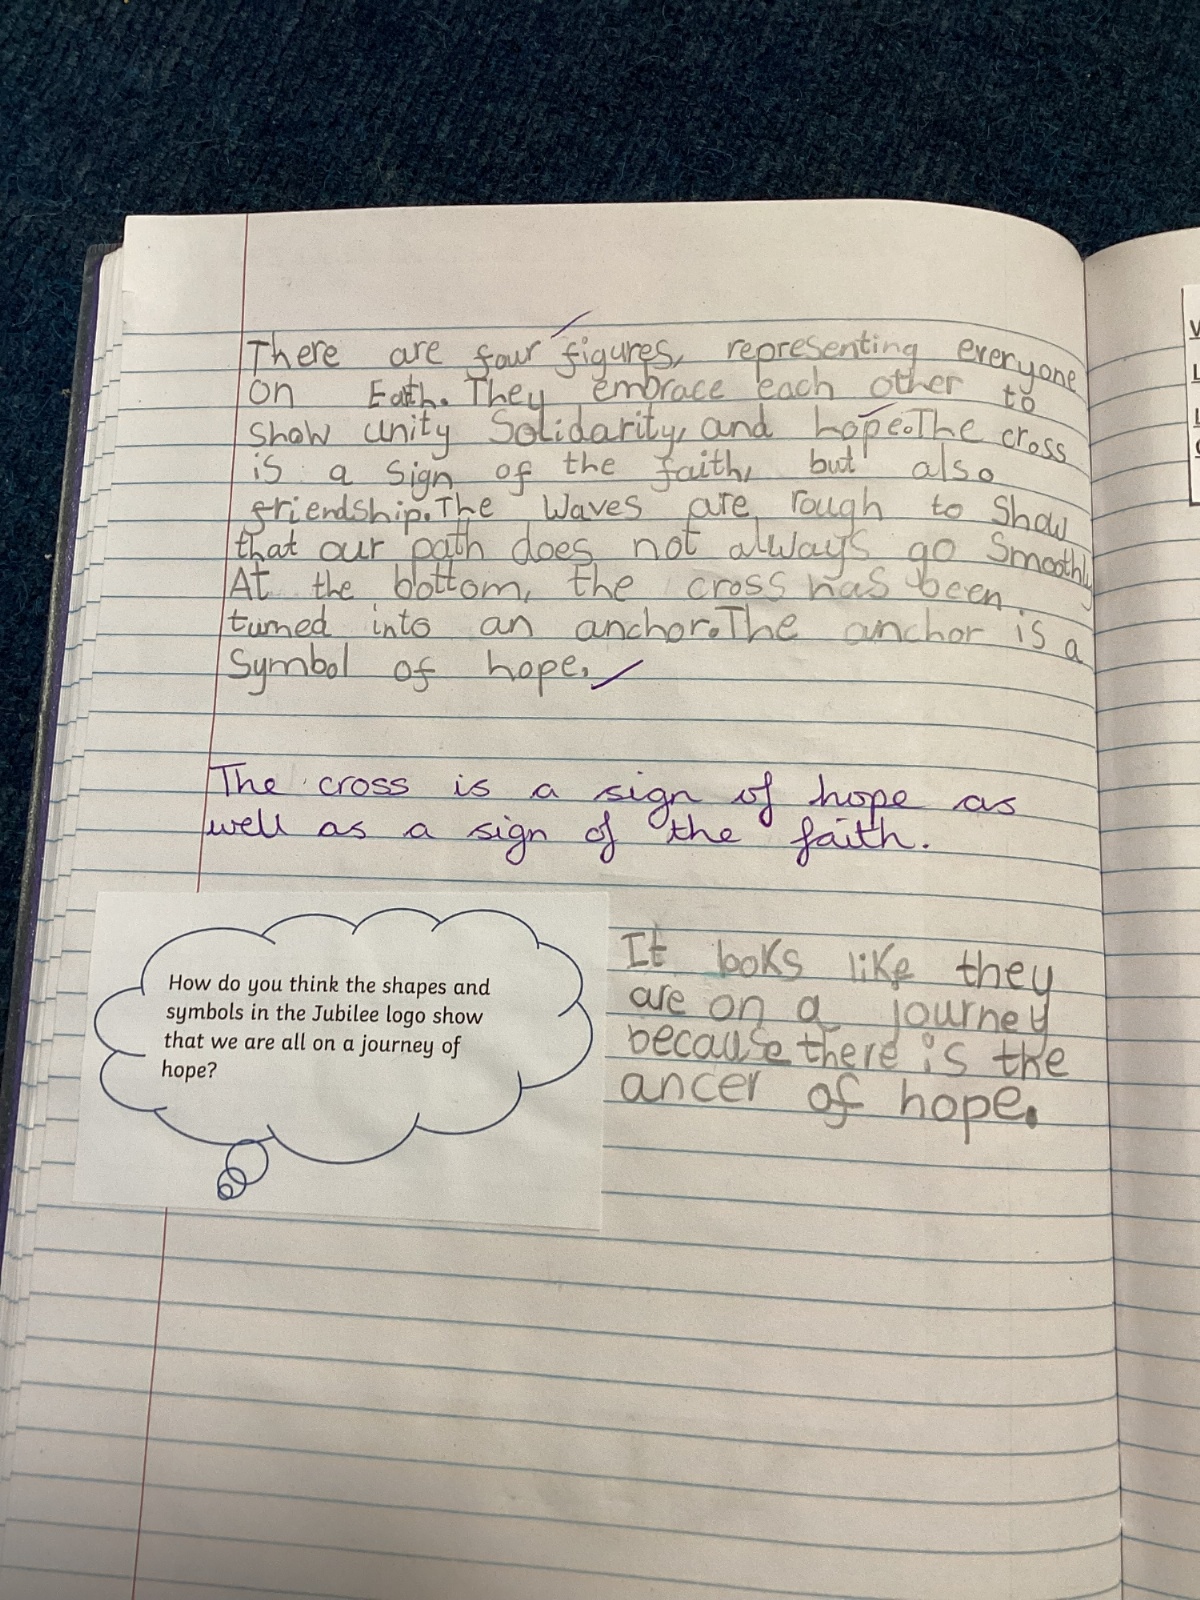 There are four figures, representing everyone
on Eath. They embrace each other to
show unity Solidarity, and hope. The cross
is a sign of the faith, but also
friendship. The Waves are rough to Show
that our path does not always go Smoothly
At the bottom, the cross has been
turned into an anchor. The anchor is a
Symbol of hope.
The cross is a sign of hope as
well as a sign of the faith.
How do you think the shapes and
symbols in the Jubilee logo show
that we are all on a journey of
hope?
It looks like they
are on a journey
because there is the
ancer of hope.